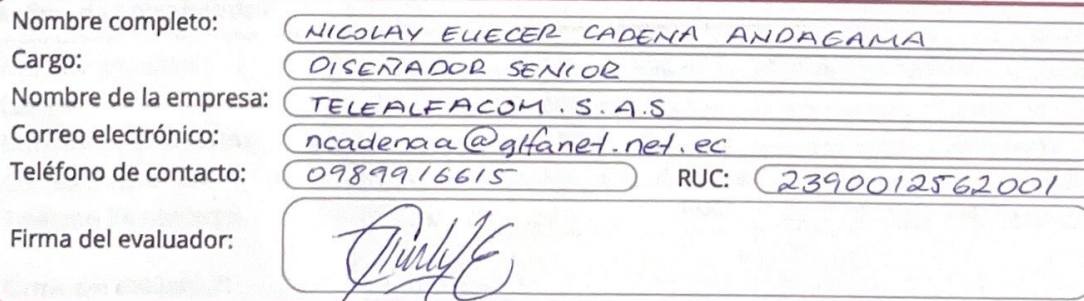 Nombre completo: NICOLAY ELIECER CADENA ANDAGAMA
Cargo: DISEÑADOR SENIOR
Nombre de la empresa: TELEALFACOM. S.A.S
Correo electrónico: ncadenaa@glfanet.net.ec
Teléfono de contacto: 0989916615 RUC: 2390012562001
Firma del evaluador: